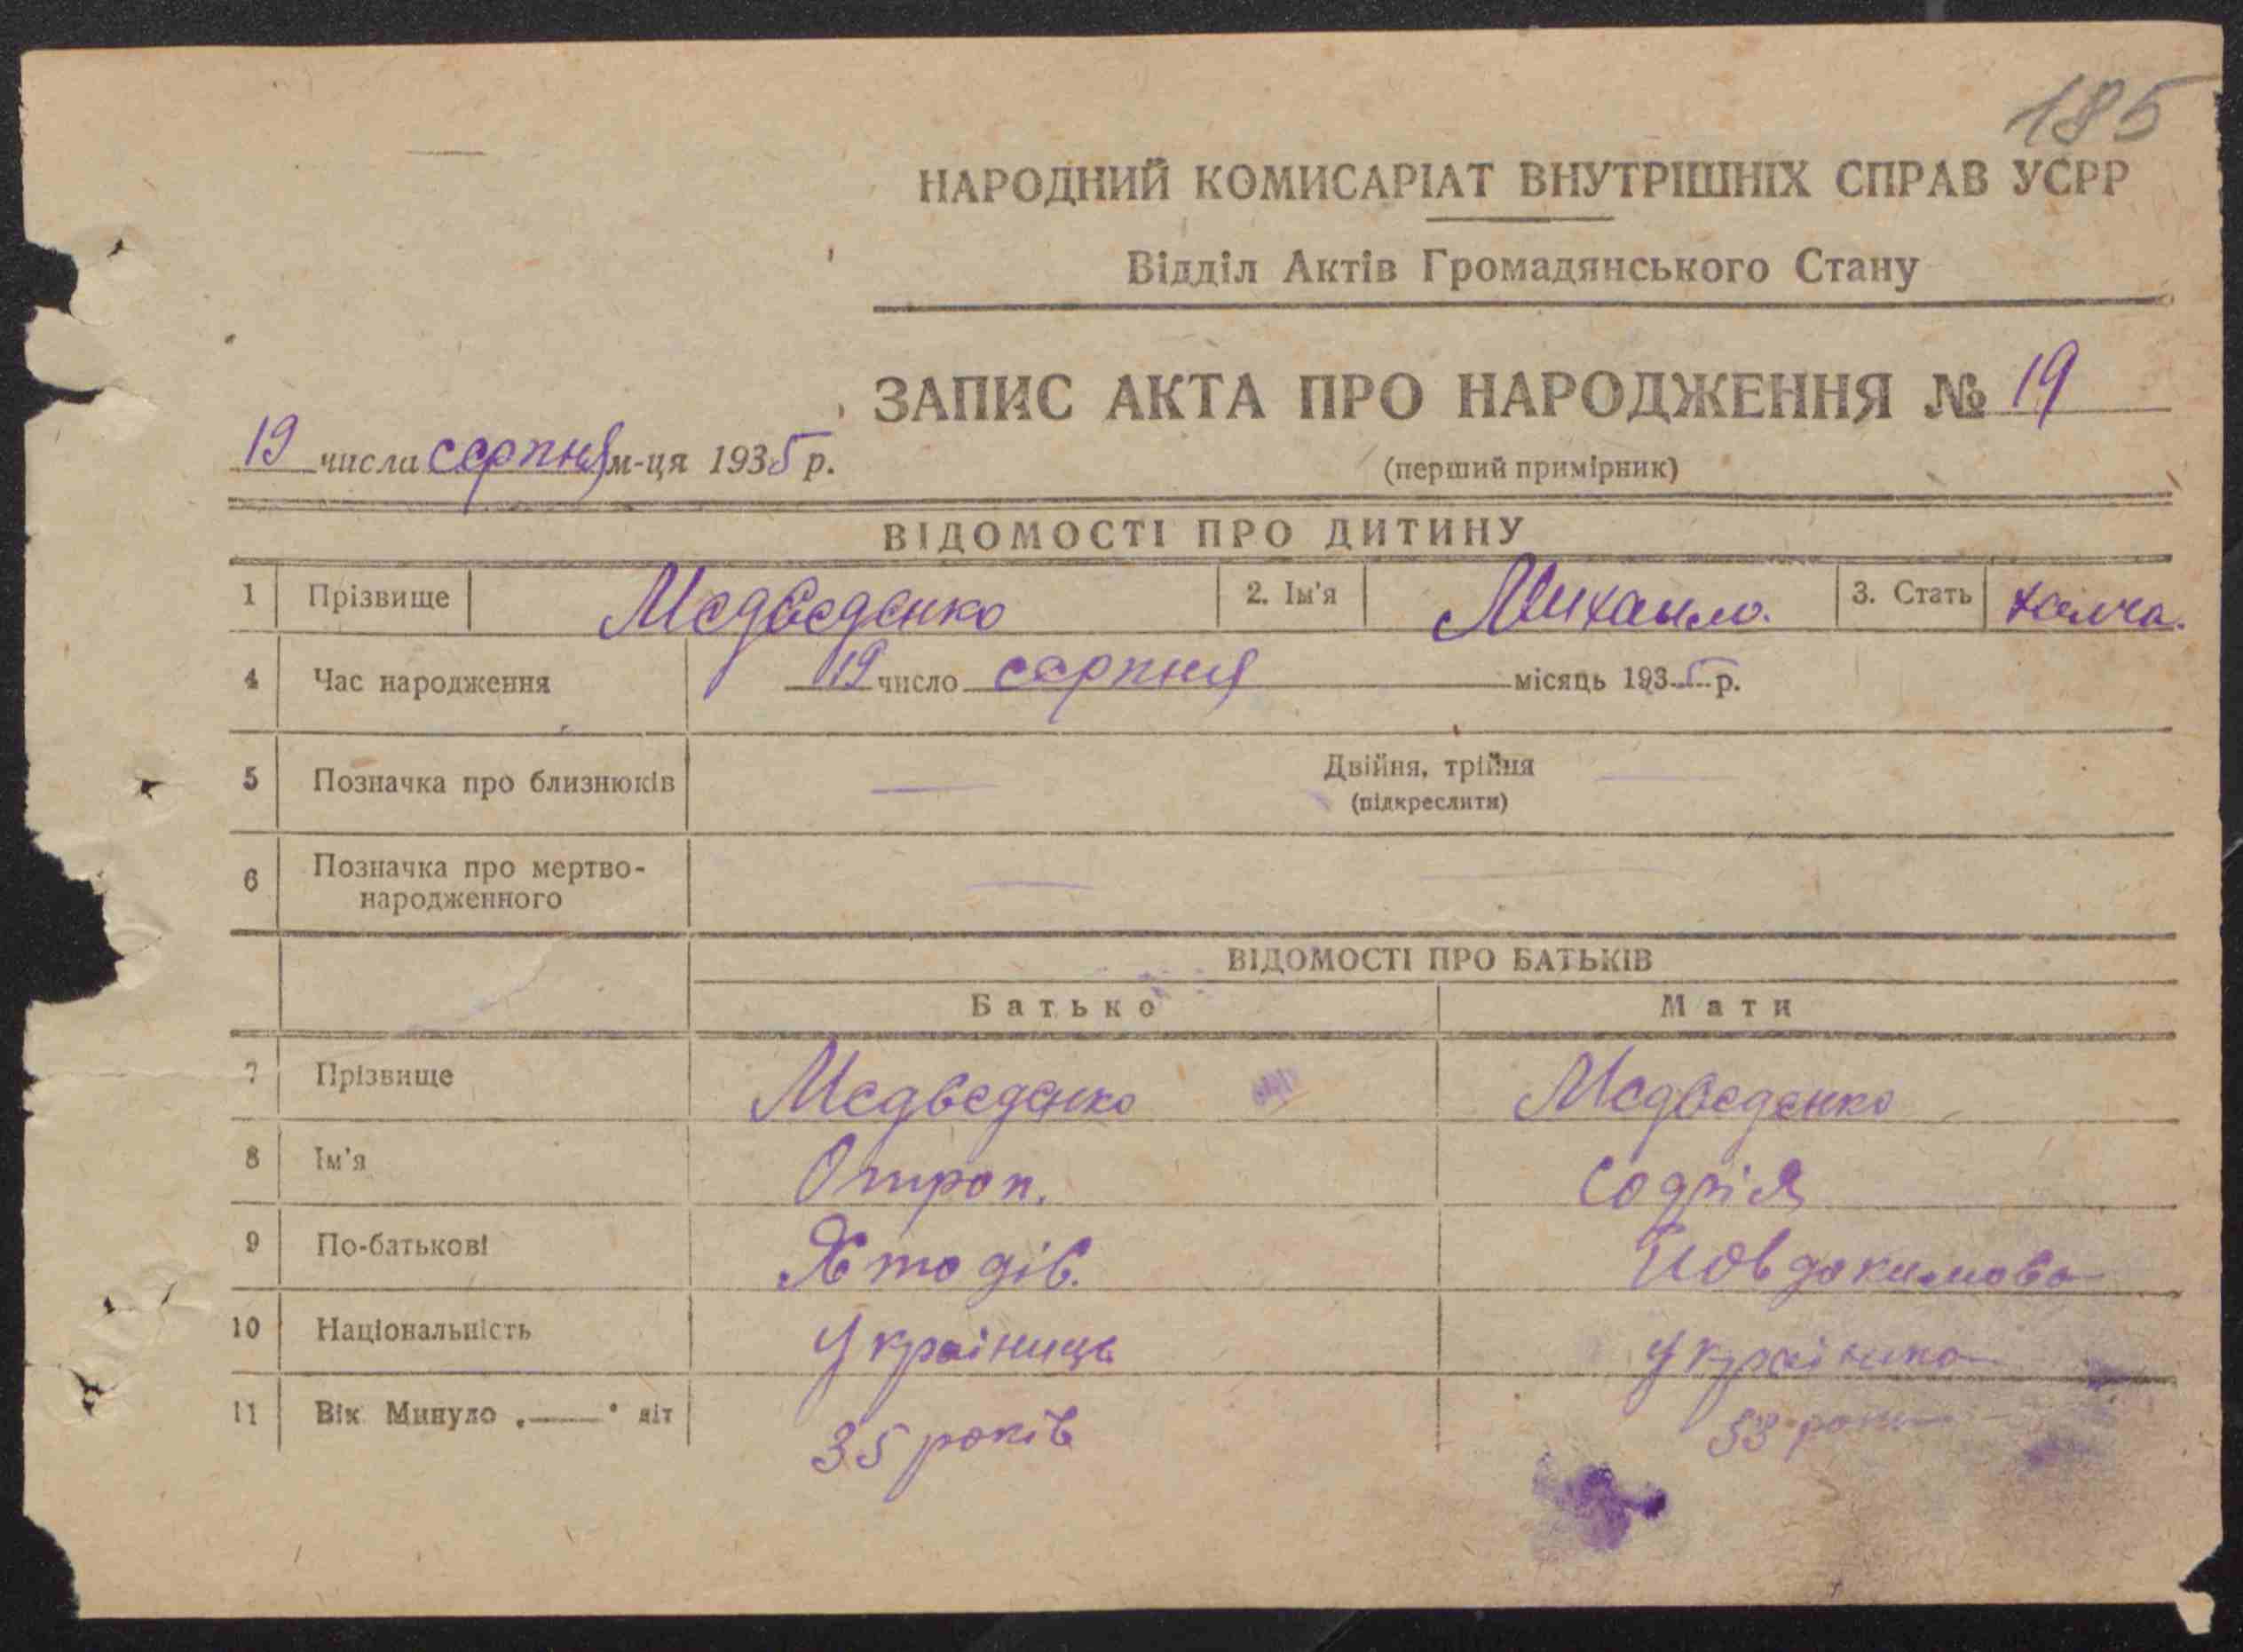 185
НАРОДНИЙ КОМИСАРІАТ ВНУТРІШНІХ СПРАВ УСРР
Відділ Актів Громадянського Стану
ЗАПИС АКТА ПРО НАРОДЖЕННЯ № 19
19 числа серпня м-ця 1935 р.
(перший примірник)
ВІДОМОСТІ ПРО ДИТИНУ
1 Прізвище Медведенко 2. Ім'я Михайло. 3. Стать
4 Час народження 19 число серпня місяць 1935 р.
5 Позначка про близнюків Двійня, трійня
(підкреслити)
6 Позначка про мертво-
народженного
ВІДОМОСТІ ПРО БАТЬКІВ
Батько Мати
7 Прізвище Медведенко Медведенко
8 Ім'я
9 По-батькові Йовдокимова
10 Національність Українець Українка
11 Вік Минуло „—" літ 35 років 33 роки